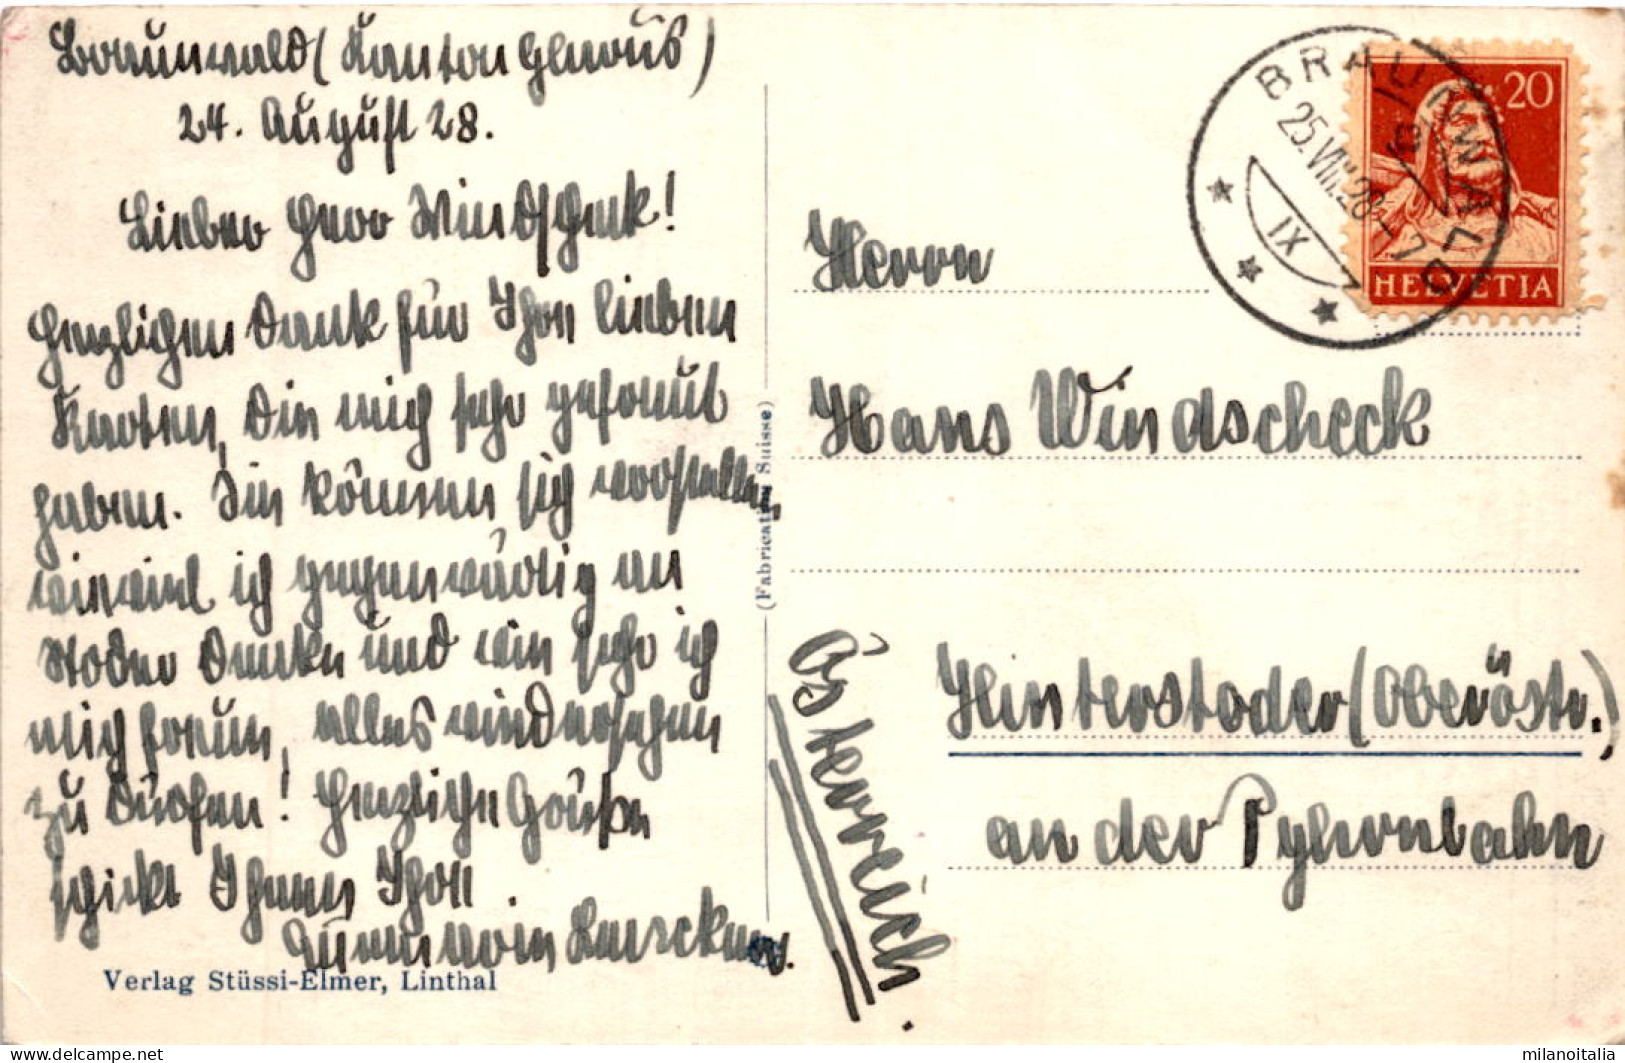 Braunwald (Kanton Glarus)
24. August 28.
Lieber Herr Windscheck!
Herzlichen Dank für Ihre lieben
Karten, die mich sehr gefreut
haben. Sie können sich vorstellen,
wieviel ich gegenwärtig an
Stoder denke und wie sehr ich
mich freue, alles wiedersehen
zu dürfen! Herzliche Grüße
schickt Ihnen Ihre
Verlag Stüssi-Elmer, Linthal
(Fabrication Suisse)
BRAUNWALD
25.VIII.28-7
IX
20
HELVETIA
Herrn
Hans Windscheck
Hinterstoder (Oberöstr.)
an der Pyhrnbahn
Österreich.
milanoitalia
www.delcampe.net